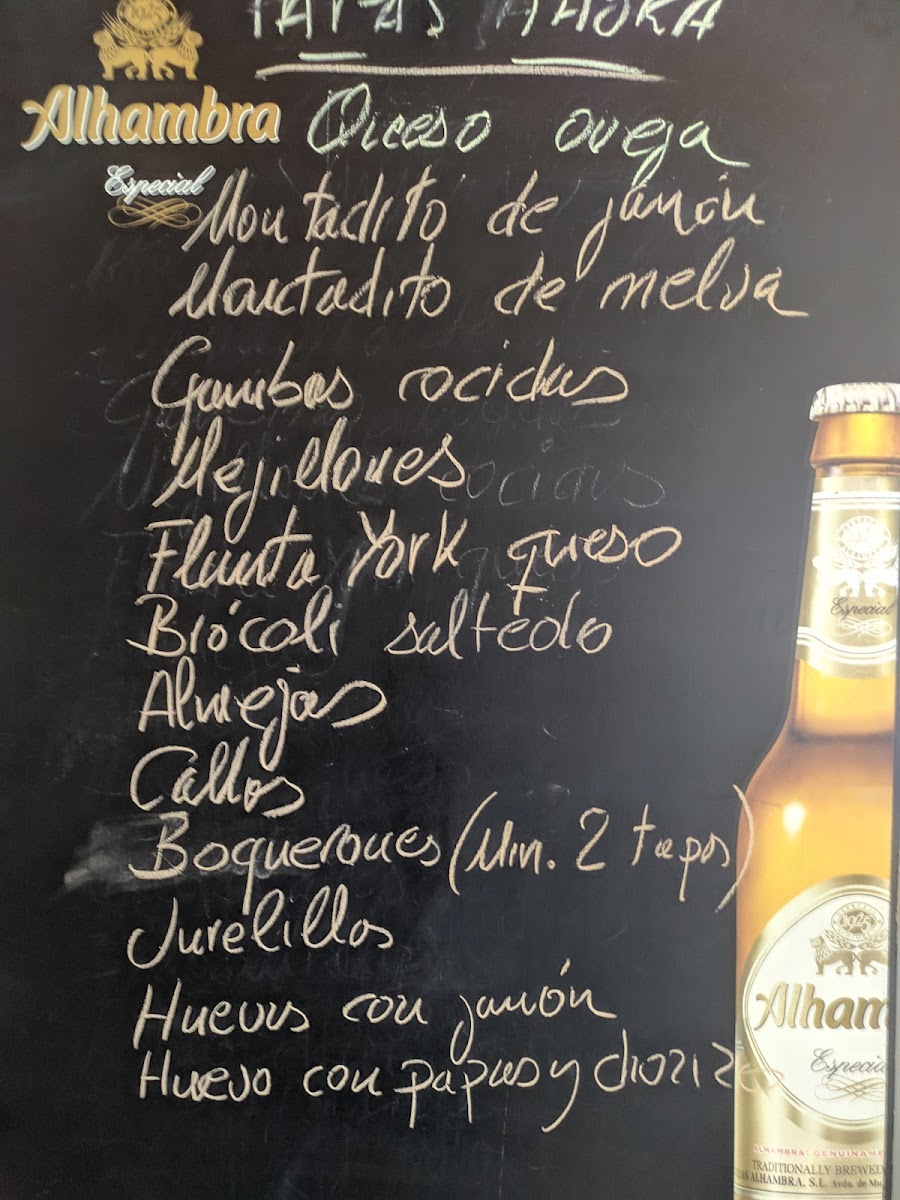 TAPAS AHORA
Alhambra
Especial
Queso oveja
Montadito de jamón
Montadito de melva
Gambas cocidas
Mejillones
Flauta York queso
Brócoli salteado
Almejas
Callos
Boquerones (Min. 2 tapas)
Jurelillos
Huevos con jamón
Huevo con papas y chorizo
Especial
1925
Alham
Especia
ALHAMBRA: GENUINAME
TRADITIONALLY BREWED
AS ALHAMBRA, S.L. Avda. de Mu